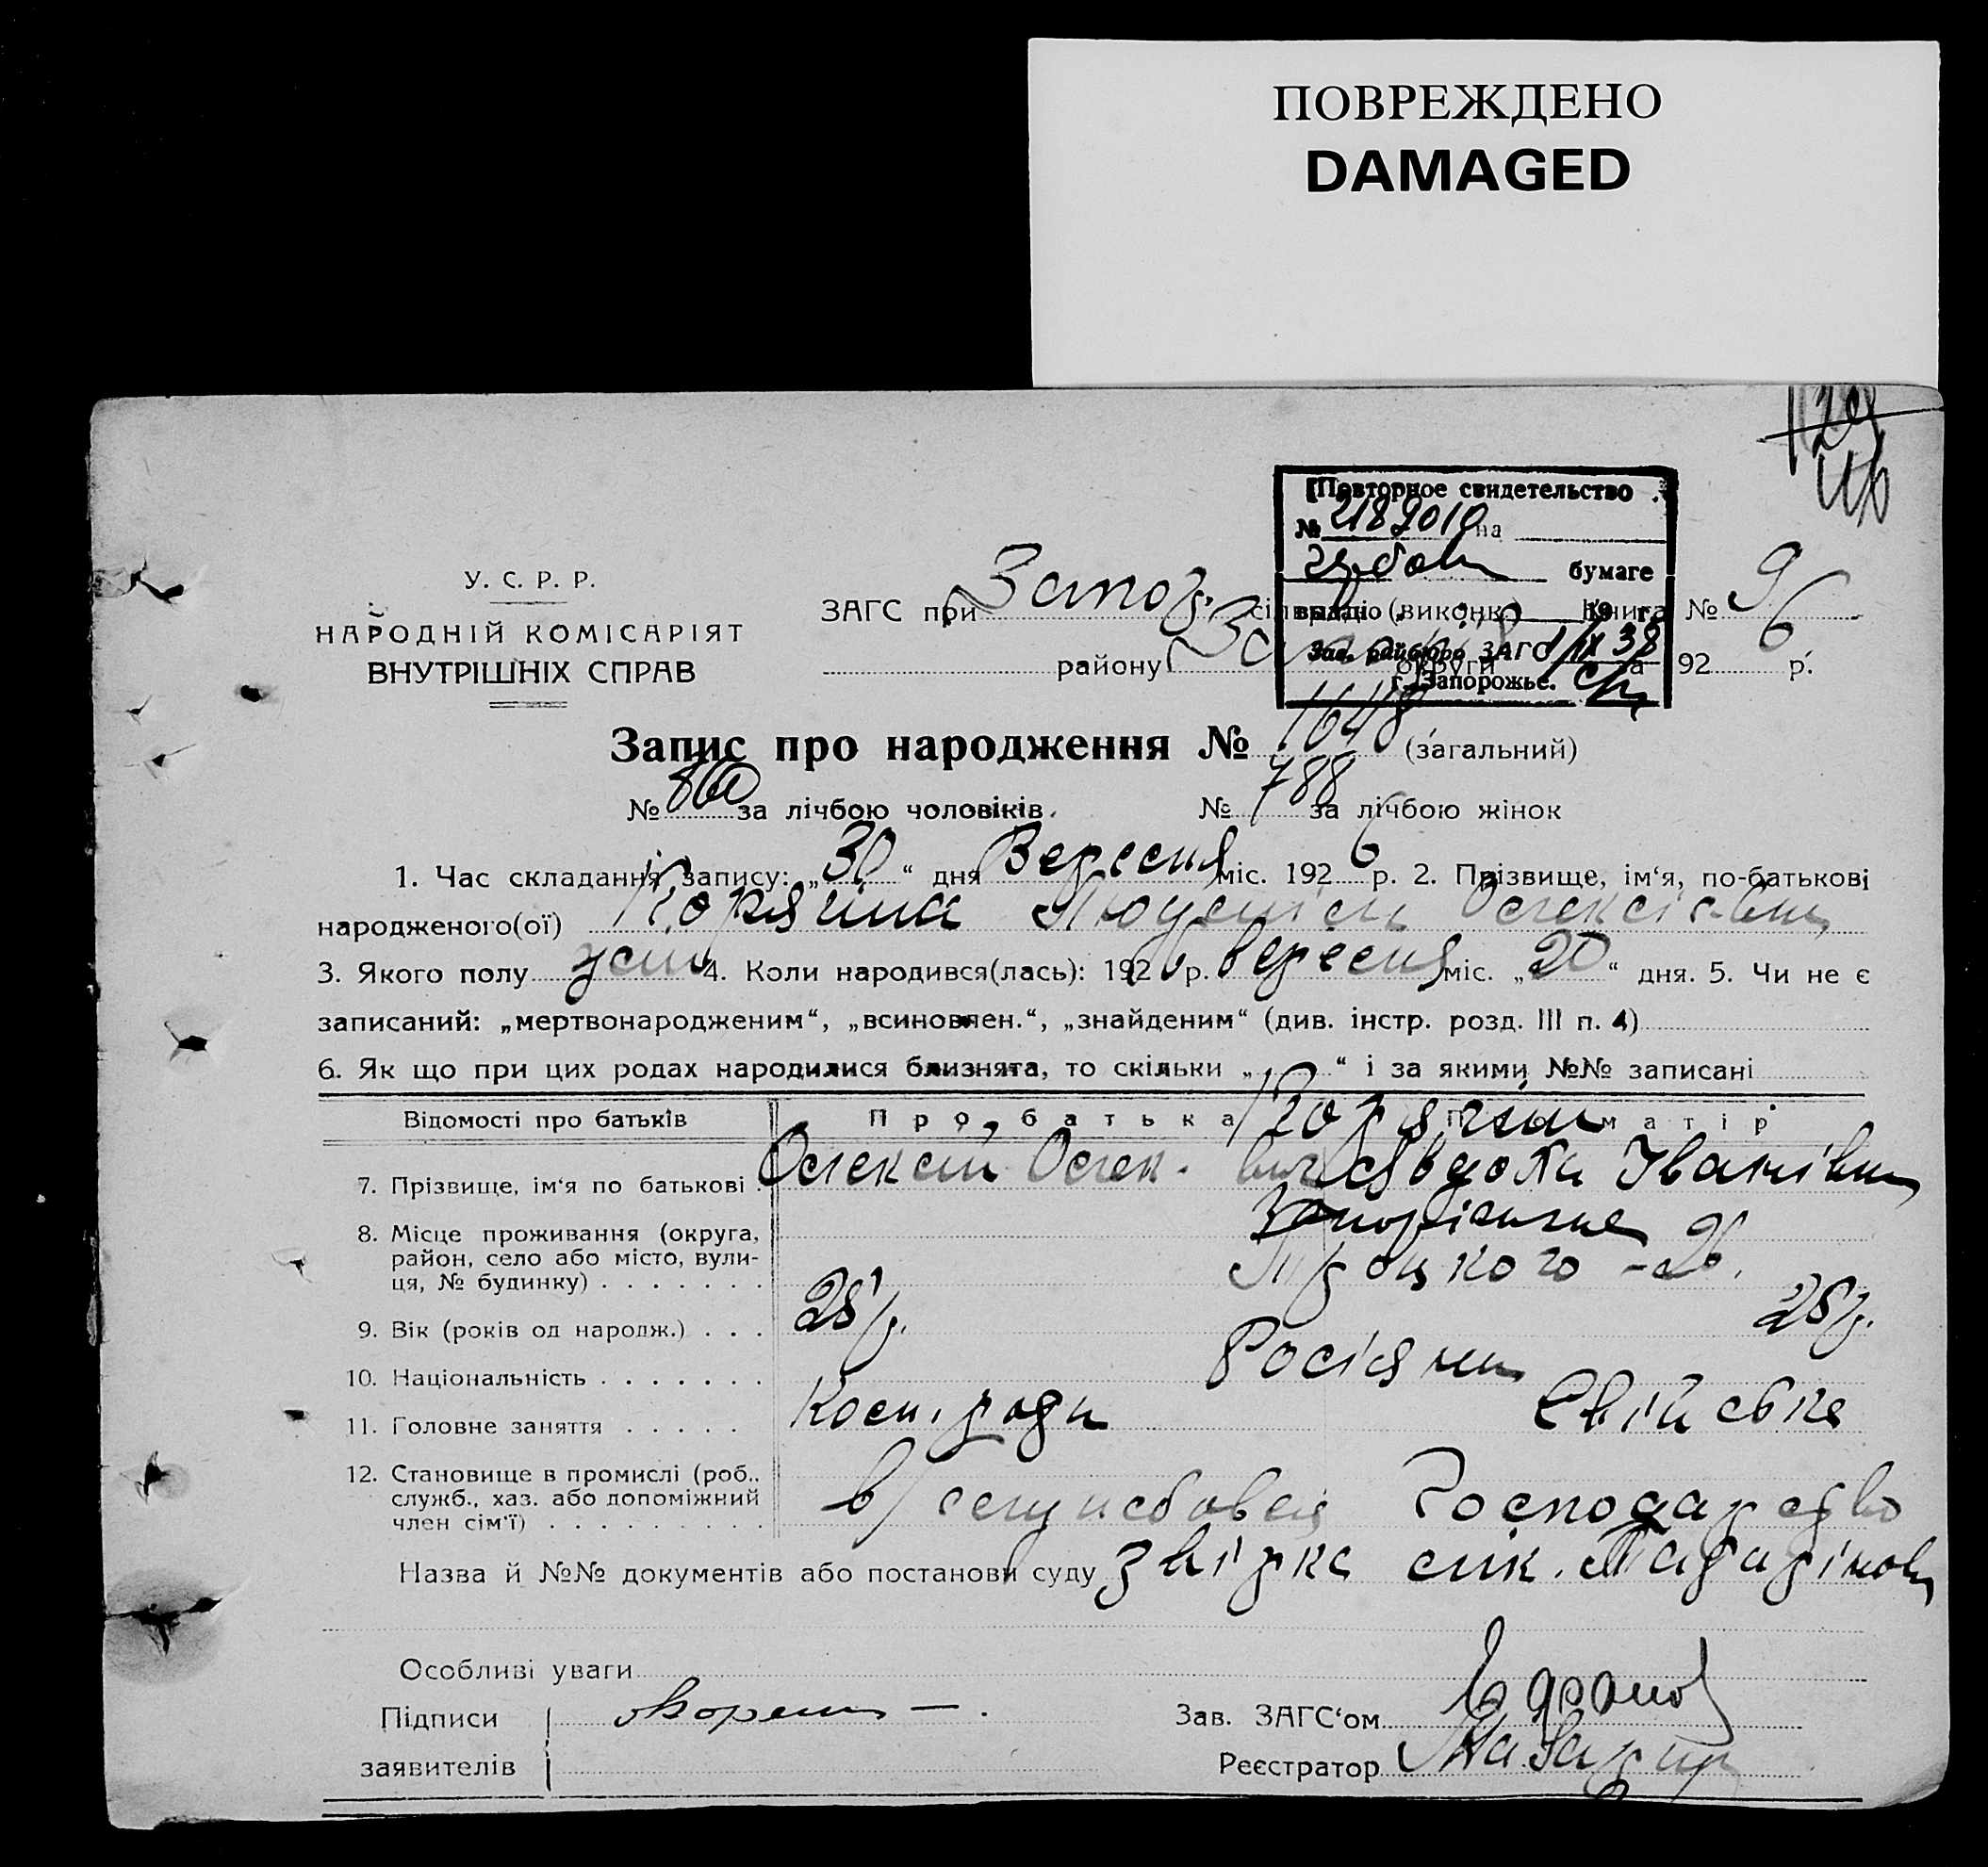 ПОВРЕЖДЕНО
DAMAGED
Повторное свидетельство
№ 2189010 на
бумаге
Зав. райбюро ЗАГС 1/IX 38
г. Запорожье.
У. С. Р. Р.
НАРОДНІЙ КОМІСАРІЯТ
ВНУТРІШНІХ СПРАВ
ЗАГС при Запоз. Книга № 9
району округи за 926 р.
Запис про народження № 1648 (загальний)
№ 860 за лічбою чоловіків. № 788 за лічбою жінок
1. Час складання запису: „30“ дня Вересня міс. 1926 р. 2. Прізвище, ім‘я, по-батькові
народженого(ої) Корячина Людмила Олексіївна
3. Якого полу жін 4. Коли народився(лась): 1926 р. вересня міс. „20“ дня. 5. Чи не є
записаний: „мертвонародженим“, „всиновлен.“, „знайденим“ (див. інстр. розд. III п. 4)
6. Як що при цих родах народилися близнята, то скільки „ “ і за якими №№ записані
Відомості про батьків Про батька Про матір
7. Прізвище, ім‘я по батькові Олексій Олек. вич Явдоха Іванівна
8. Місце проживання (округа,
район, село або місто, вули-
ця, № будинку) Троцкого - 26.
9. Вік (років од народж.) 28 р. 28 р.
10. Національність Росіяни
11. Головне заняття Свійське
12. Становище в промислі (роб.,
служб., хаз. або допоміжний
член сім‘ї) Господарство
Назва й №№ документів або постанови суду
Особливі уваги
Підписи
заявителів
Зав. ЗАГС‘ом
Реєстратор